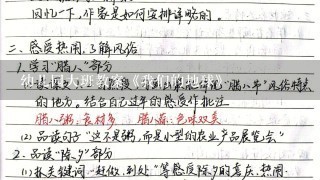 回忆一下，作家是如何安排详略的。
二、感受热闹，了解风俗
1. 学习“腊八”部分
幼儿园大班教案《我们的地球》
风俗特点
的地方。结合自己过年的感受作批注
腊八粥：食材多 腊八蒜：色味双美
(2) 品读句子“这不是粥，而是小型的农业产品展览会”
2. 品读“除夕”部分
(1) 抓关键词——赶做、到处、等感悟除夕的喜庆、热闹